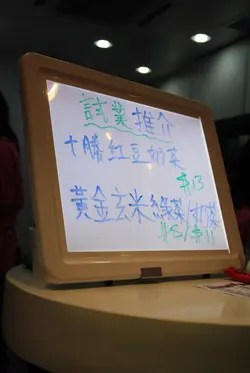 試業推介
十勝紅豆奶茶
$13
黃金玄米綠茶/奶茶
115/$11